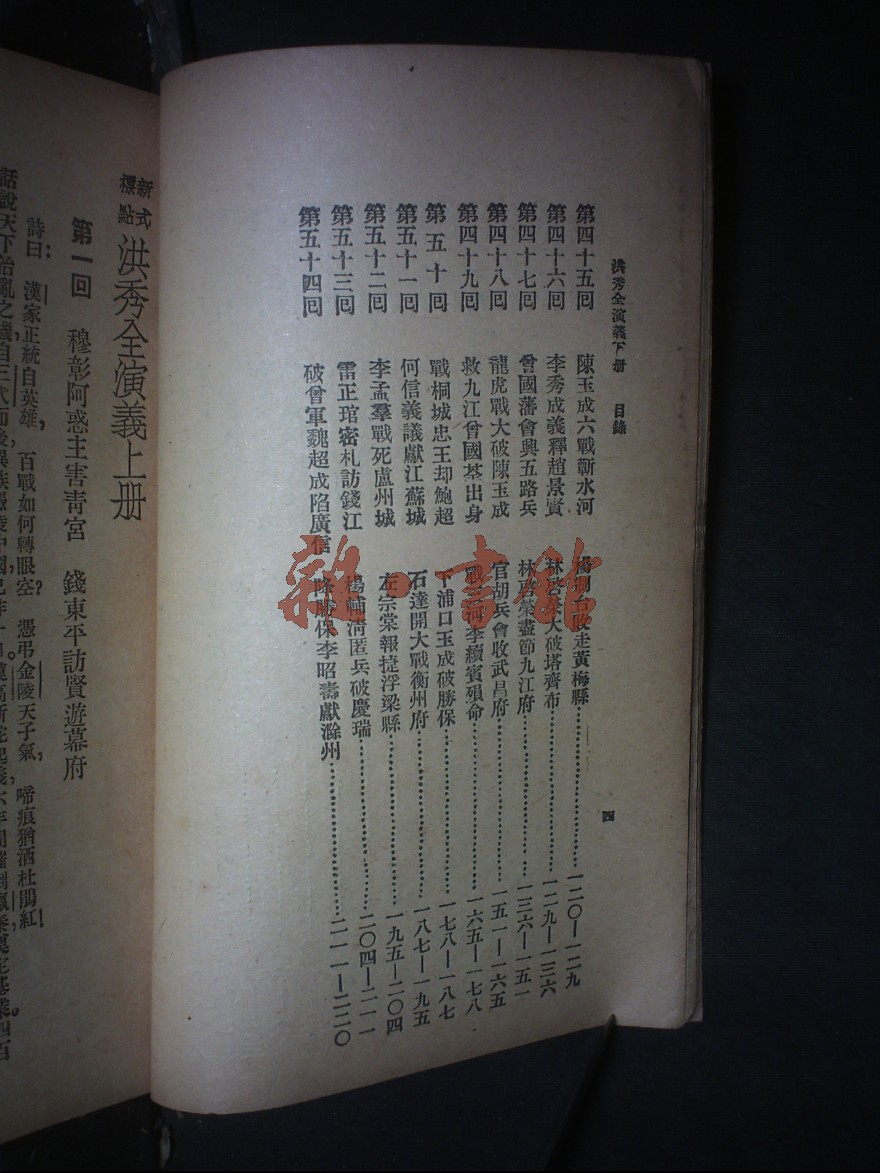 洪秀全演義下册 目錄 四
第四十五回 陳玉成六戰蘄水河 楊制台敗走黃梅縣……一二〇—一二九
第四十六回 李秀成義釋趙景賢 林啓榮大破塔齊布……一二九—一三六
第四十七回 曾國藩會興五路兵 林啓榮盡節九江府……一三六—一五一
第四十八回 龍虎戰大破陳玉成 官胡兵會收武昌府……一五一—一六五
第四十九回 救九江曾國荃出身 戰三河李續賓殞命……一六五—一七八
第五十回 戰桐城忠王却鮑超 下浦口玉成破勝保……一七八—一八七
第五十一回 何信義議獻江蘇城 石達開大戰衡州府……一八七—一九五
第五十二回 李孟羣戰死盧州城 左宗棠報捷浮梁縣……一九五—二〇四
第五十三回 雷正琯密札訪錢江 楊輔淸匿兵破慶瑞……二〇四—二一一
第五十四回 破曾軍魏超成陷廣信 降勝保李昭壽獻滁州……二一一—二二〇
新式標點 洪秀全演義上册
第一回 穆彰阿惑主害靑宮 錢東平訪賢遊幕府
詩曰：漢家正統自英雄，百戰如何轉眼空？憑弔金陵天子氣，啼痕猶洒杜鵑紅！
話說天下治亂之機自三代而後異族憑陵中國已非一日漢高祖
雜·書館